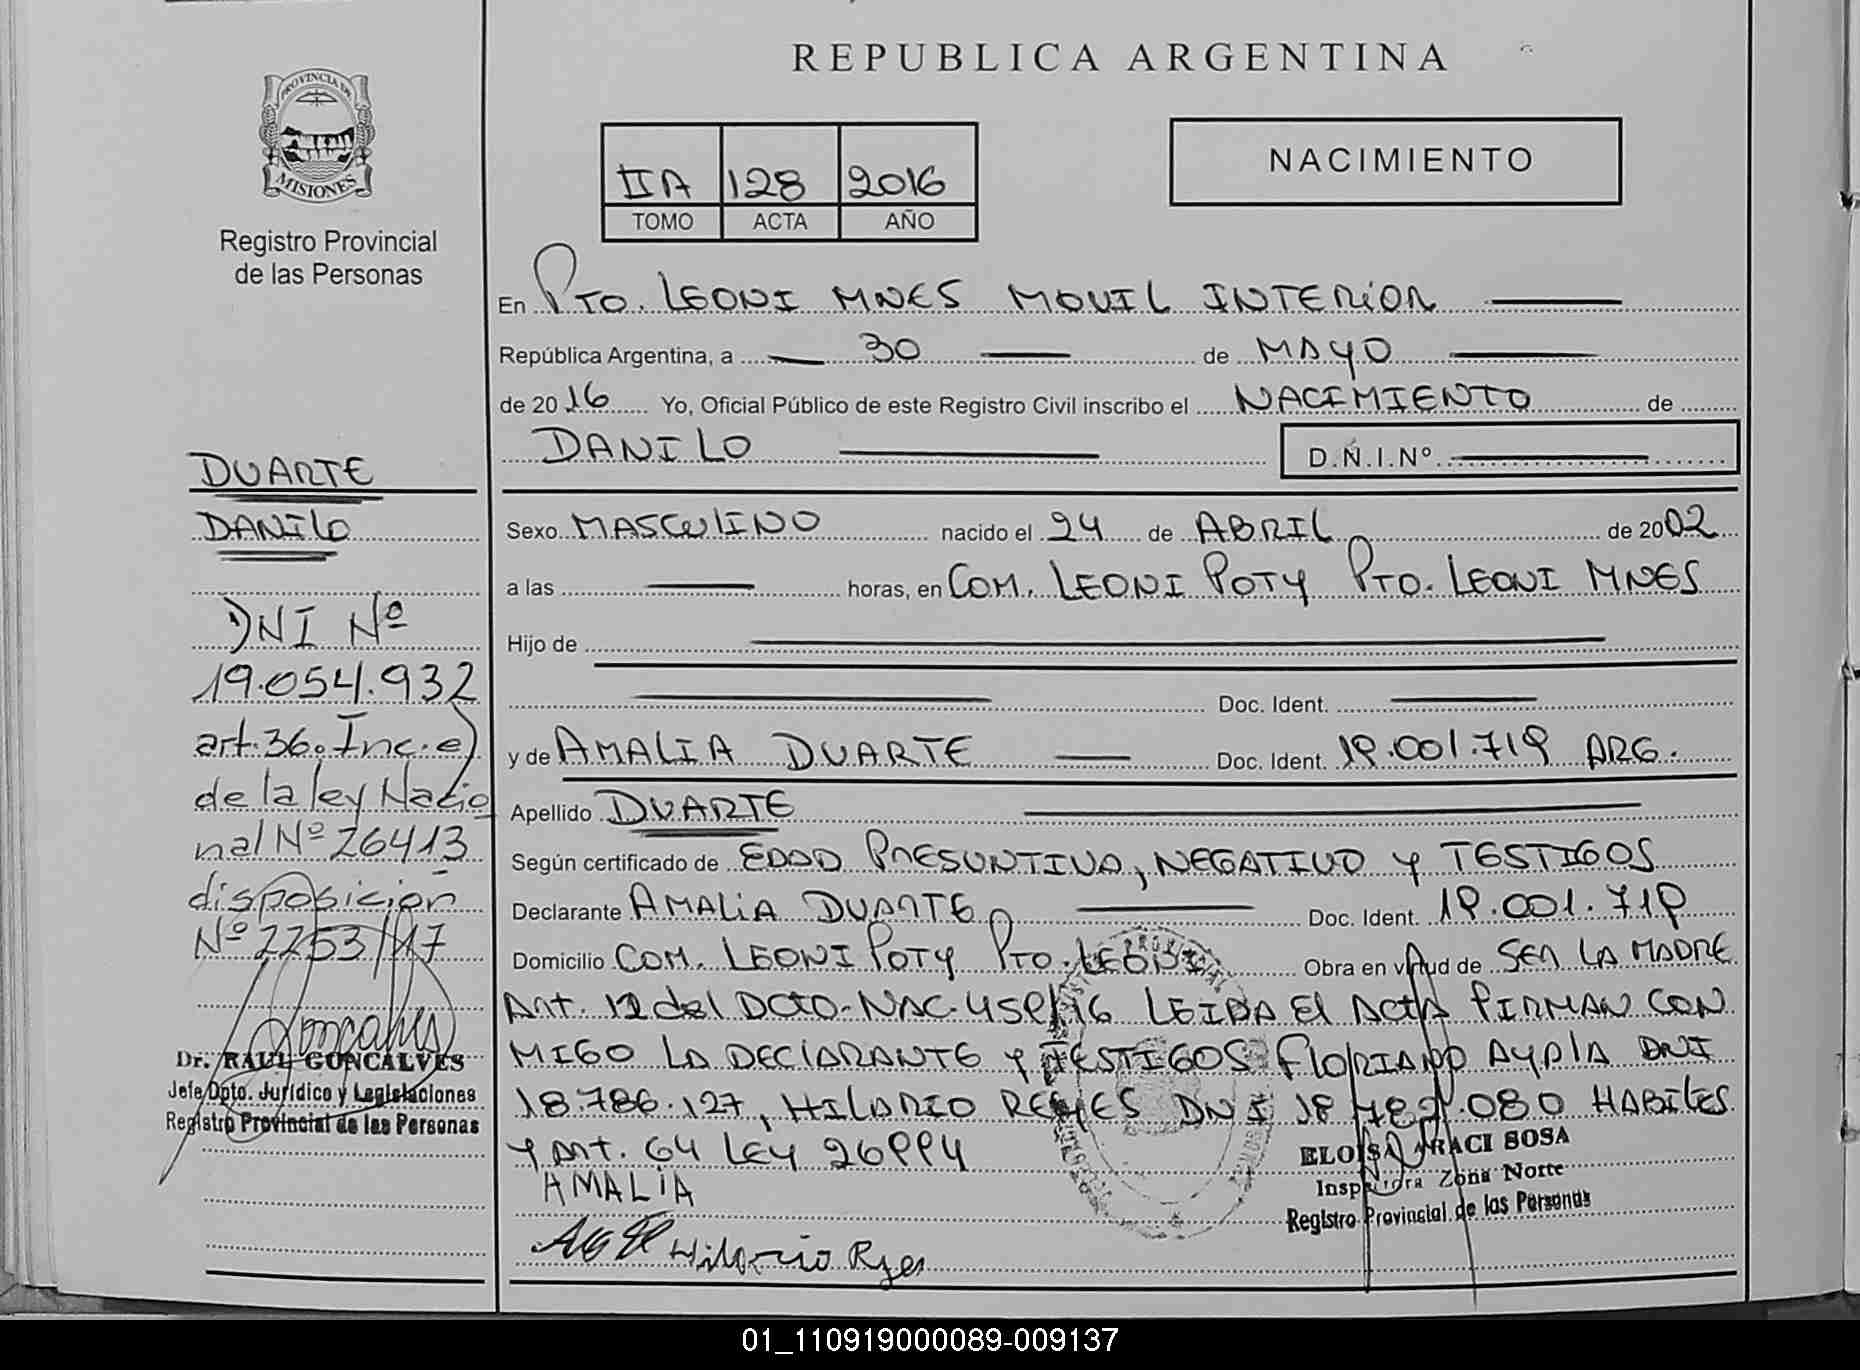 REPUBLICA ARGENTINA
PROVINCIA DE
MISIONES
Registro Provincial
de las Personas
IIA 128 2016
TOMO ACTA AÑO
NACIMIENTO
En PTO. LEONI MNES MOVIL INTERIOR
República Argentina, a 30 de MAYO
de 2016 Yo, Oficial Público de este Registro Civil inscribo el NACIMIENTO de
DANILO D.N.I.Nº
Sexo MASCULINO nacido el 24 de ABRIL de 2002
a las horas, en COM. LEONI POTY PTO. LEONI MNES
Hijo de
Doc. Ident.
y de AMALIA DUARTE Doc. Ident. 19.001.719 ARG.
Apellido DUARTE
Según certificado de EDAD PRESUNTIVA, NEGATIVO y TESTIGOS
Declarante AMALIA DUARTE Doc. Ident. 19.001.719
Domicilio COM. LEONI POTY PTO. LEONI Obra en virtud de SER LA MADRE
Art. 12 del DCTO. NAC. 459/16 LEIDA El ACTA FIRMAN CON
MIGO LA DECLARANTE y TESTIGOS FLORIANO AYALA DNI
18.786.127, HILARIO REYES DNI HABILES
Y ART. 64 LEY 26994
AMALIA
Hilario Reyes
ELOISA ARACI SOSA
Inspectora Zona Norte
Registro Provincial de las Personas
DUARTE
DANILO
DNI Nº
19.054.932
art. 36. Inc. e)
de la ley Nacio
nal Nº 26413
disposición
Nº 2253/17
Dr. RAUL GONCALVES
Jefe Dpto. Jurídico y Legislaciones
Registro Provincial de las Personas
01_110919000089-009137